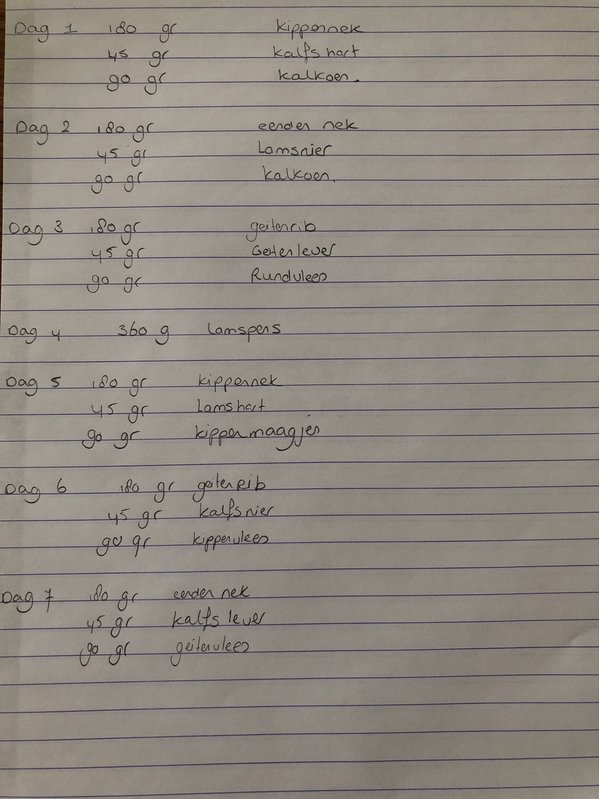 Dag 1 180 gr kippennek
45 gr kalfshart
90 gr kalkoen.
Dag 2 180 gr eenden nek
45 gr Lamsnier
90 gr kalkoen.
Dag 3 180 gr geitenrib
45 gr Geitenlever
90 gr Rundvlees
Dag 4 360 g Lamspens
Dag 5 180 gr kippennek
45 gr Lamshart
90 gr kippenmaagjes
Dag 6 180 gr geitenrib
45 gr kalfsnier
90 gr kippenvlees
Dag 7 180 gr eenden nek
45 gr kalfs lever
90 gr geitenvlees